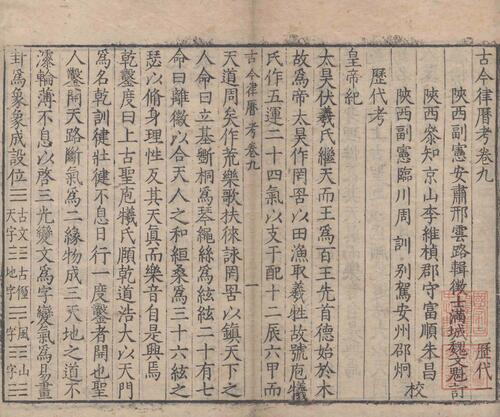 古今律曆考卷九　歷代
陜西副憲安肅邢雲路輯徵士滿城魏文魁訂
陜西叅知京山李維楨郡守富順朱昌
陜西副憲臨川周　訓別駕安州邵炯　校
歷代考
皇帝紀
太昊伏羲氏繼天而王爲百王先首德始於木
故爲帝太昊作罔罟以田漁取羲牲故號庖犧
氏作五運二十四氣以支干配十二辰六甲而
古今律曆考卷九　一
天道周矣作荒樂歌扶徠詠罔罟以鎮天下之
人命曰立基斲桐爲琴繩絲爲絃絃二十有七
命曰離徽以合天人之和絙桑爲三十六絃之
瑟以脩身理性反其天真而樂音自是興焉
乾鑿度曰上古聖庖犧氏頋乾道浩大以天門
爲名乾訓健壯健不息日行一度鑿者開也聖
人鑿開天路斷氣爲二緣物成三天地之道不
濛輪薄不息以啓三光變文爲字變氣爲昜畫
卦爲象象成設位☰古文天字☷古坤地字☴風字☶山字